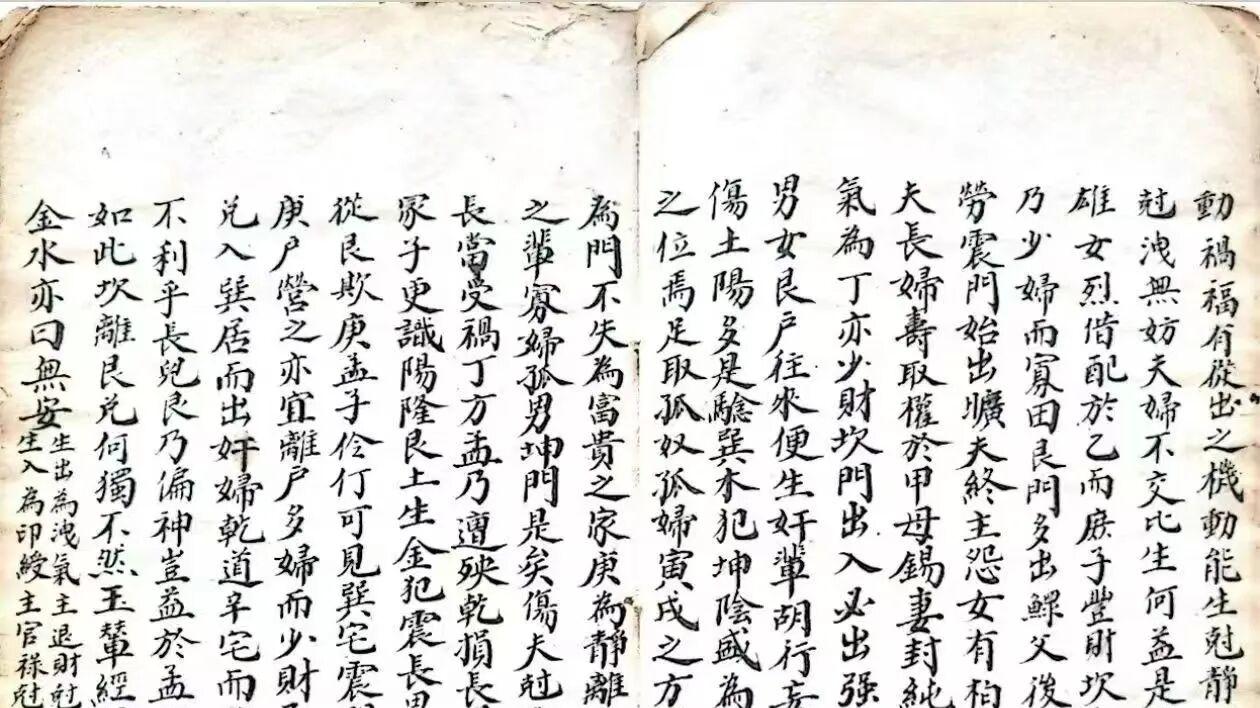 動禍福有從出之機動能生尅靜
尅洩無妨夫婦不交比生何益是
雄女烈偕配於乙而庶子豐財坎
乃少婦而寡田艮門多出鰥父後
勞震門始出曠夫終主怨女有柏
夫長婦壽取權於甲母錫妻封純
氣為丁亦少財坎門出入必出强
男女艮户往來便生奸輩胡行妄
傷土陽多是驗巽木犯坤陰盛為
之位焉足取孤奴孤婦寅戌之方
為門不失為富貴之家庚為靜離
之輩寡婦孤男坤門是矣傷夫尅
長當受禍丁方孟乃遭殃乾損長
冢子更識陽隆艮土生金犯震長男
從艮欺庚孟子伶仃可見巽宅震
庚户營之亦宜離户多婦而少財
兌入巽居而出奸婦乾道辛宅而
不利乎長兒艮乃偏神豈益於孟
如此坎離艮兌何獨不然玉輦經
金水亦曰無安生出為洩氣主退財尅
生入為印綬主官祿尅